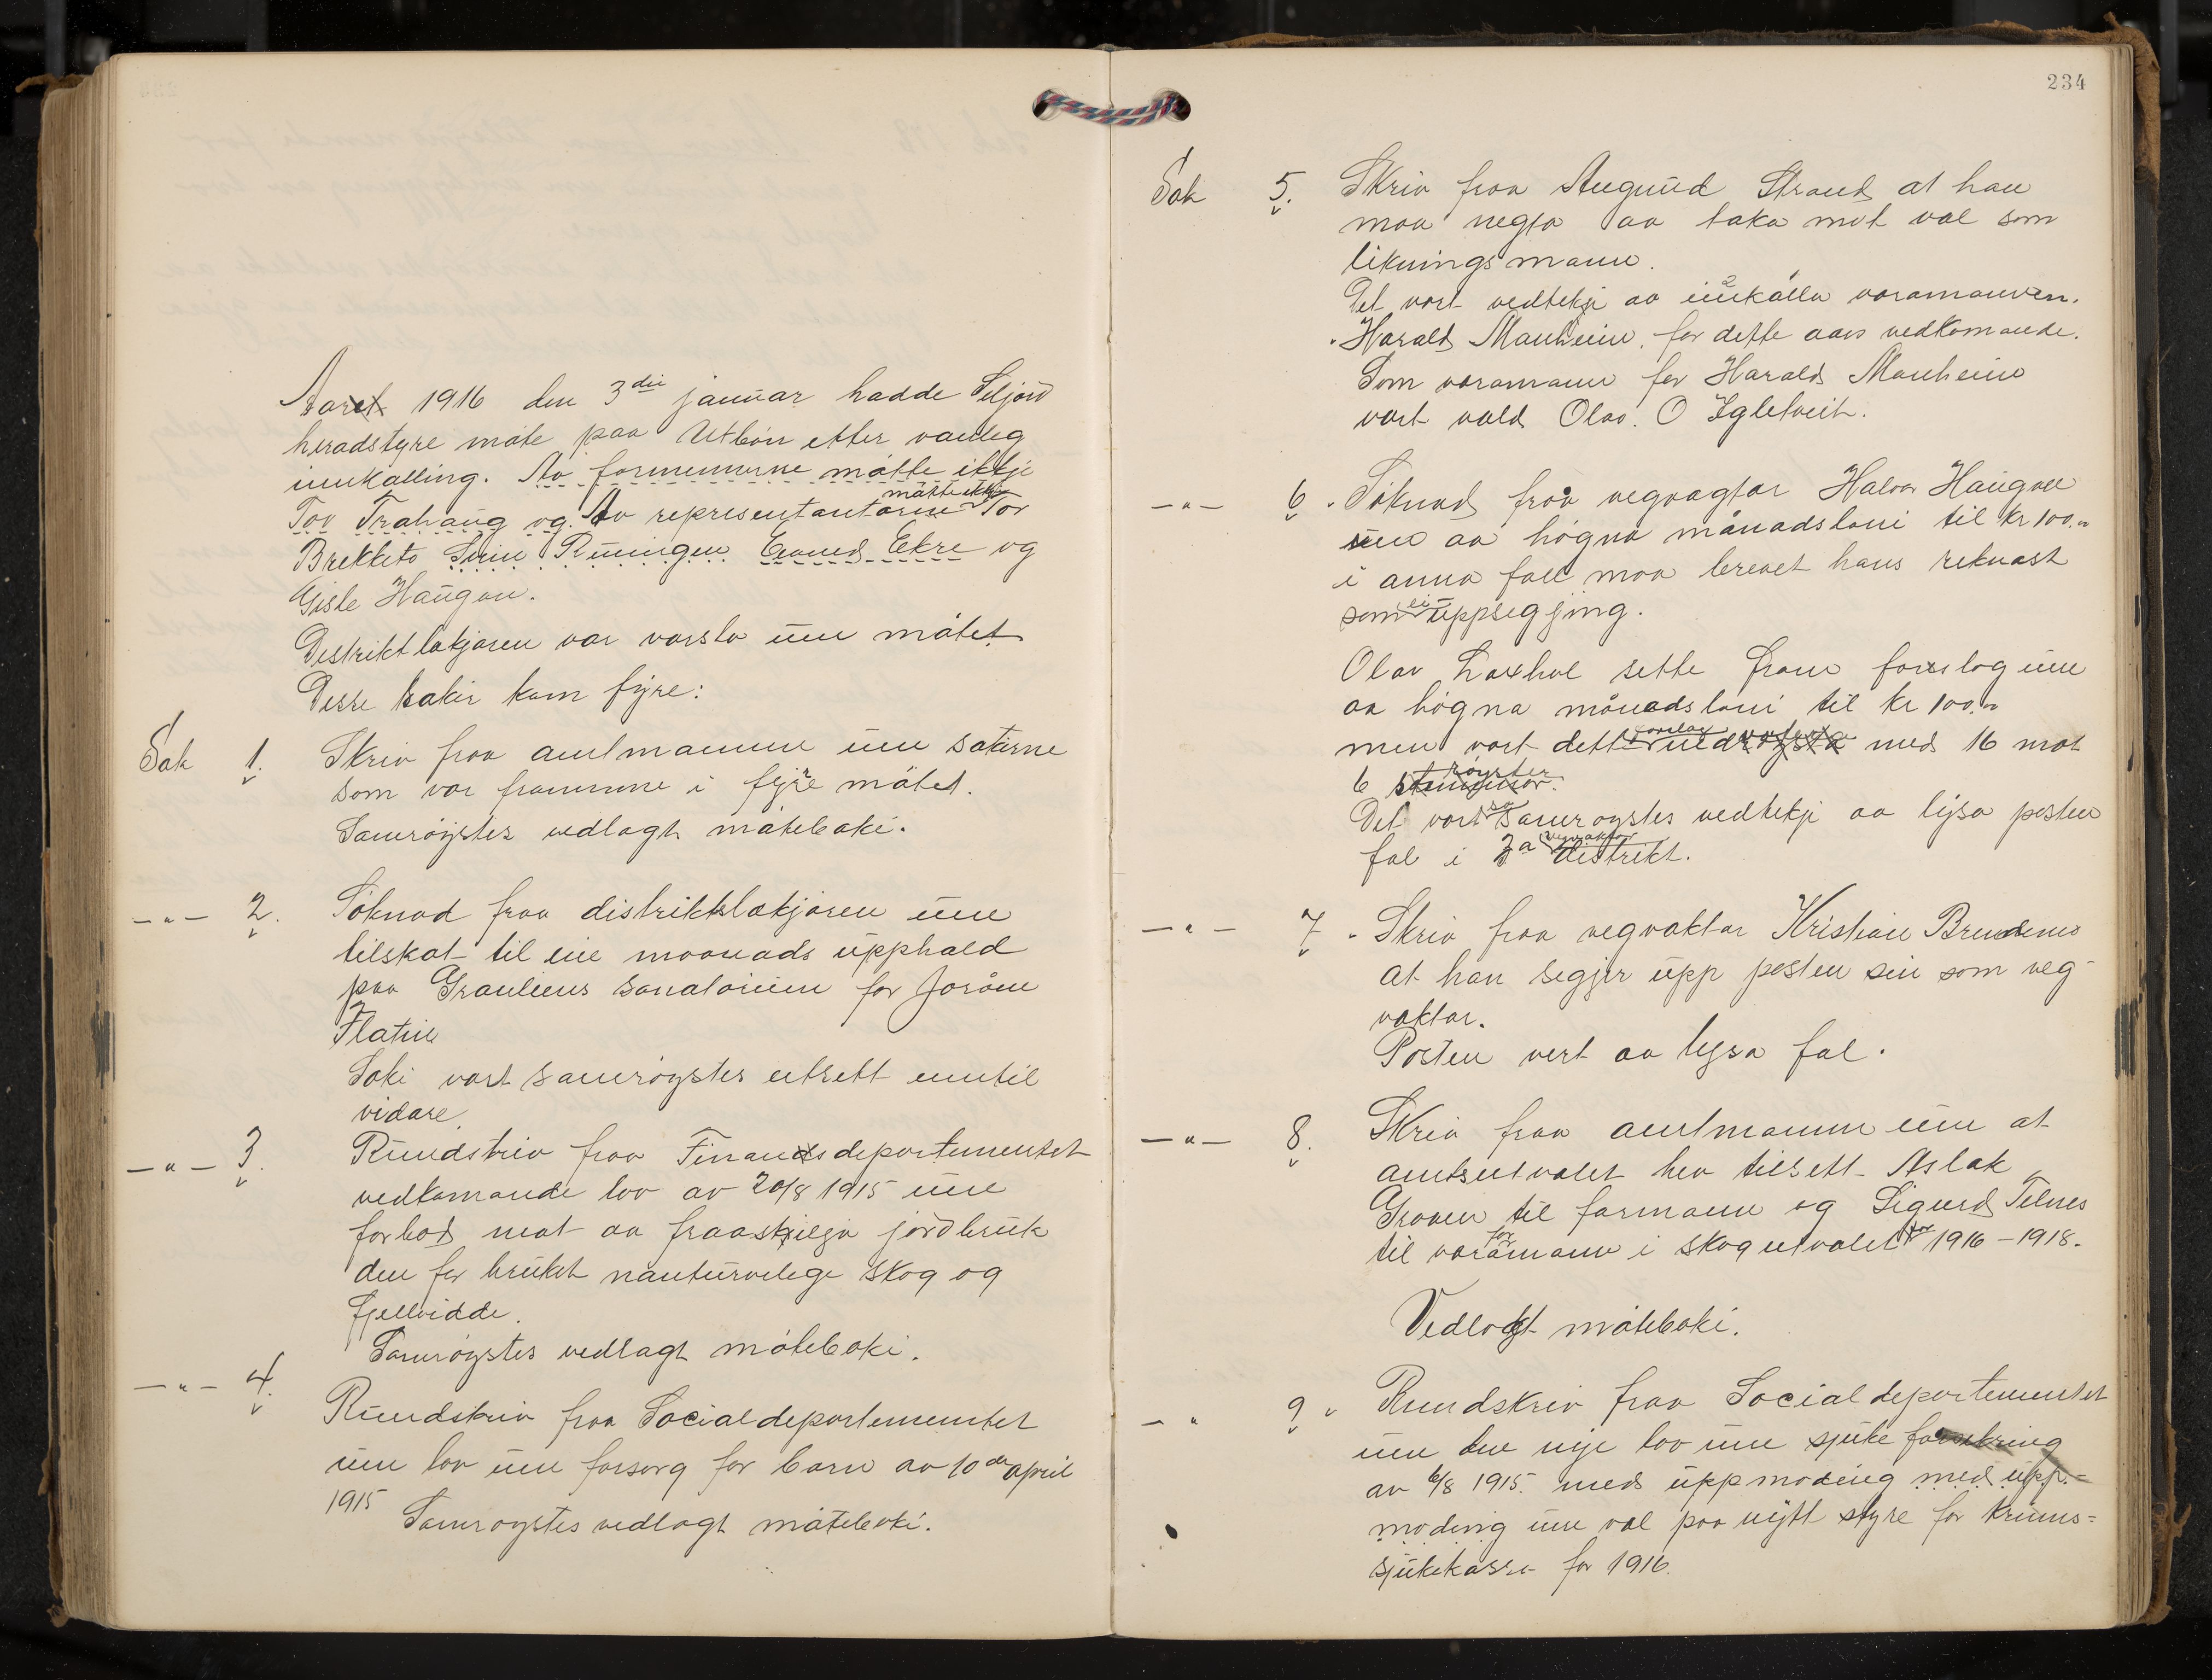 Aaret 1916 den 3die januar hadde Seljord
heradstyre møte paa Utbøn etter vanleg
innkalling. Av formennerne møtte ikkje
Tov Trahaug og. Av representantarne møtte ikkje Tor
Brekketo Svein Runingen Eivind Ekre og
Gisle Haugan.
Destriktlækjaren var varsla um møtet.
Desse saker kom fyre:
Sak 1. Skriv fraa amtmannen um sakerne
som var framme i fyrre møtet.
Samrøystes vedlagt møteboki.
—"— 2. Søknad fraa distriktslækjaren um
tilskot til ein maanads upphald
paa Granliens sanatorium for Jorånn
Flatin
Saki vart samrøystes utsett inntil
vidare.
—"— 3. Rundskriv fraa Finansdepartementet
vedkomande lov av 20/8 1915 um
forbod mot aa fraaskilja jordbruk
den for bruket nauturvelege skog og
fjellvidde.
Samrøystes vedlagt møteboki.
—"— 4. Rundskriv fraa Socialdepartementet
um lov um forsorg for barn av 10de april
1915
Samrøystes vedlagt møteboki.
234
Sak 5. Skriv fraa Augund Strand at han
maa negta aa taka mot val som
likningsmann.
Det vart vedtekje aa innkalla varamannen.
Harald Manheim, for dette aars vedkomande.
Som varamann for Harald Manheim
vart vald Olav. O Igletveit.
—"— 6. Søknad fraa vegvagtar Halvor Haugan
um aa høgna månadsløni til kr 100.-
i anna fall maa brevet hans reknast
som ei uppsegjing.
Olav Laxhol sette fram forslag um
aa høgna månadsløni til kr 100.-
men vart dette forslag nedrøysta med 16 mot
6 røyster.
Det vart so samrøystes vedtekje aa lysa posten
fal i 3a vegvaktar distrikt.
—"— 7. Skriv fraa vegvaktar Kristian Brendemo
at han segjer upp posten sin som veg-
vaktar.
Posten vert aa lysa fal.
—"— 8. Skriv fraa amtmannen um at
amtsutvalet hev tilsett Aslak
Groven til formann og Sigurd Telnes
til varaformann i skogutvalet for 1916 - 1918.
Vedlagt møteboki.
—" 9. Rundskriv fraa Socialdepartementet
um den nye lov um sjukeforsikring
av 6/8 1915. med uppmoding med upp-
moding um val paa nytt styre for krins=
sjukekassa for 1916.